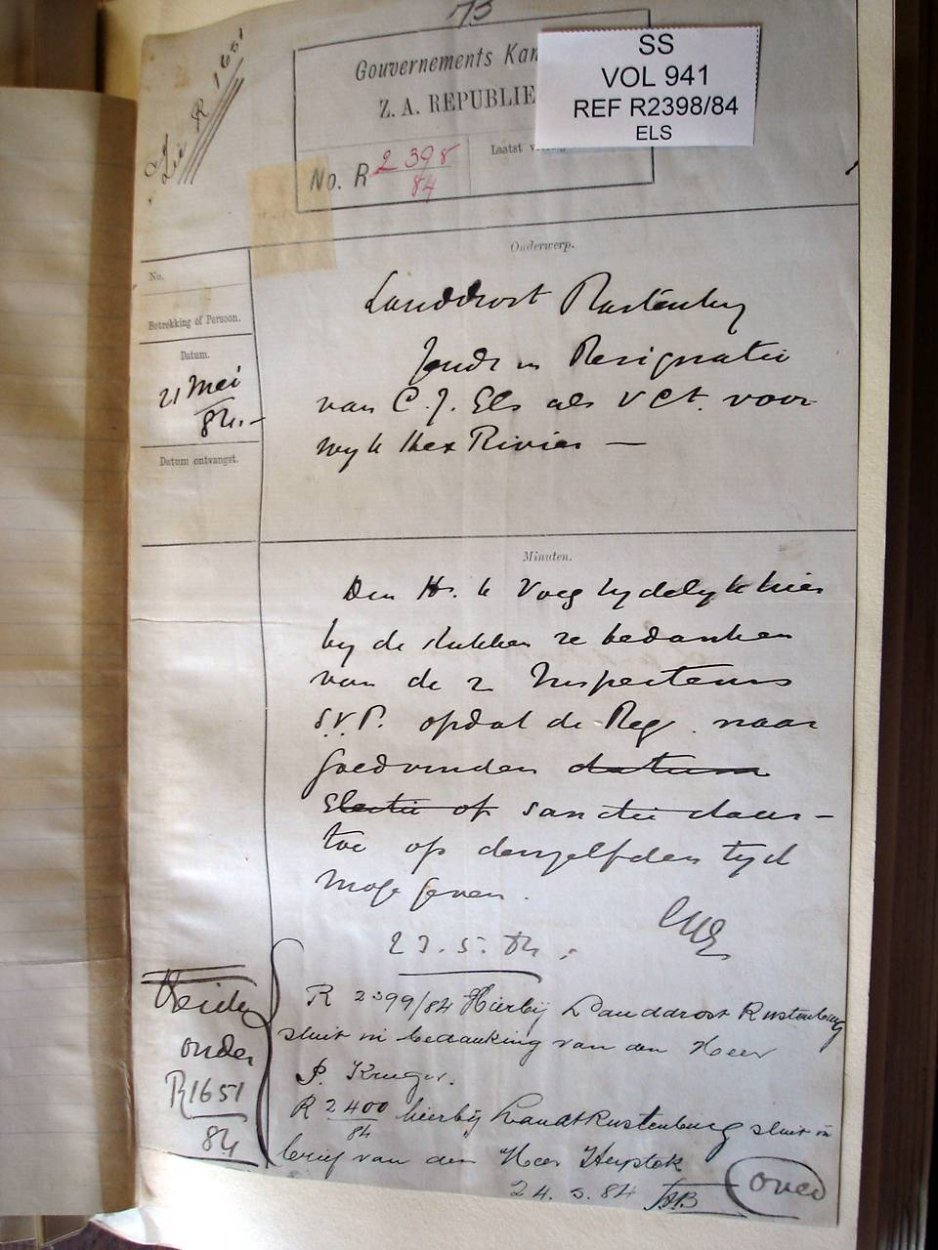 73
Zie R 1651
Gouvernements Kan
Z. A. REPUBLIE
No. R 2398/84
Laatst
SS
VOL 941
REF R2398/84
ELS
Onderwerp.
No.
Betrekking of Persoon.
Datum.
21 Mei
84.-
Datum ontvangst.
Landdrost Rustenburg
Zendt in Resignatie
van C. J. Els als V Ct. voor
wyk Hex Rivier —
Minuten.
Den Hr. k Voeg tydelyk hier
by de stukken re bedanken
van de 2 Inspecteurs
S.V.P. opdat de Reg. naar
goedvinden datum
Electie of sanctie daar-
toe op denzelfden tyd
moge geven.
23.5.84.
R 2399/84 Hierbij Landdrost Rustenburg
sluit in bedanking van den Heer
P. Kruger.
R 2400/84 hierbij Landt Rustenburg sluit in
brief van den Heer Heystek
24.5.84
Beiden
onder
R1651
84
over